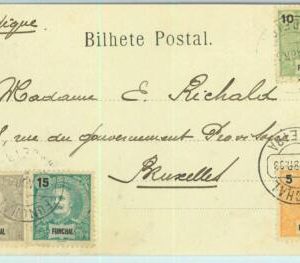 10
dique.
Bilhete Postal.
Madame E. Richald
, rue du Gouvernement Provisoire
Bruxelles
15
FUNCHAL
FUNCHAL
5